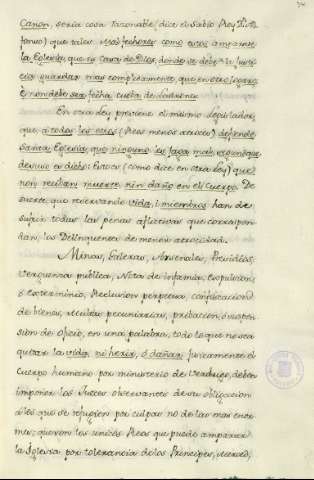 Canon, seria cosa razonable (dice el Sabio Rey Dn. Al
fonso) que tales Malfechores como estos amparase
la Eglesia, que es Casa de Dios, donde se debe la Justi
cia guardar mas complidamente, que en otro logar:
E non debe ser fecha cueba de Ladrones.
En otra Ley previene el mismo Legislador,
que, à todos los otros (Reos menos atroces) defiende
Santa Eglesia que ninguno les faga mal,
de suso es dicho: Estoces (como dice en otra Ley) que
non reciban muerte nin daño en el Cuerpo. De
suerte, que reservando vida, i miembros han de
sufrir todas las penas aflictivas que correspon
dan, los Delinquentes de menor atrocidad.
Minas, Galeras, Arsenales, Presidios,
Verguenza publica, Nota de infamia, Expulsion
ò exterminio, Reclusion perpetua, confiscacion
de bienes, multas pecuniarias, privacion, ò suspen
sion de oficio, en una palabra, todo lo que no sea
quitar la vida, ni herir, ò dañar fisicamente el
Cuerpo humano por ministerio de Verdugo, deben
imponer los Jueces observantes de su obligacion
à los que se refugien por culpas no de las mas enor
mes; que son los unicos Reos que puede amparar
la Iglesia por tolerancia de los Principes,